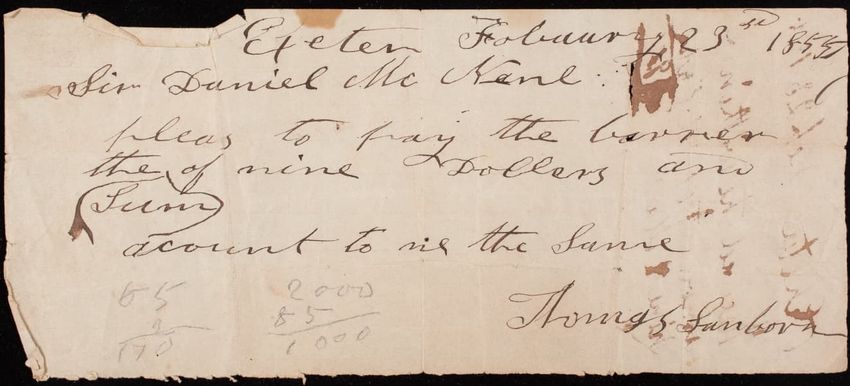 Exeter Fobuury 23rd 1855
Sir Daniel Mc Nenl
pleas to pay the berrer
the of nine Dollers and
Sum
acount to me the Same
Thomas Sanborn
85 2000
2 85
170 1000